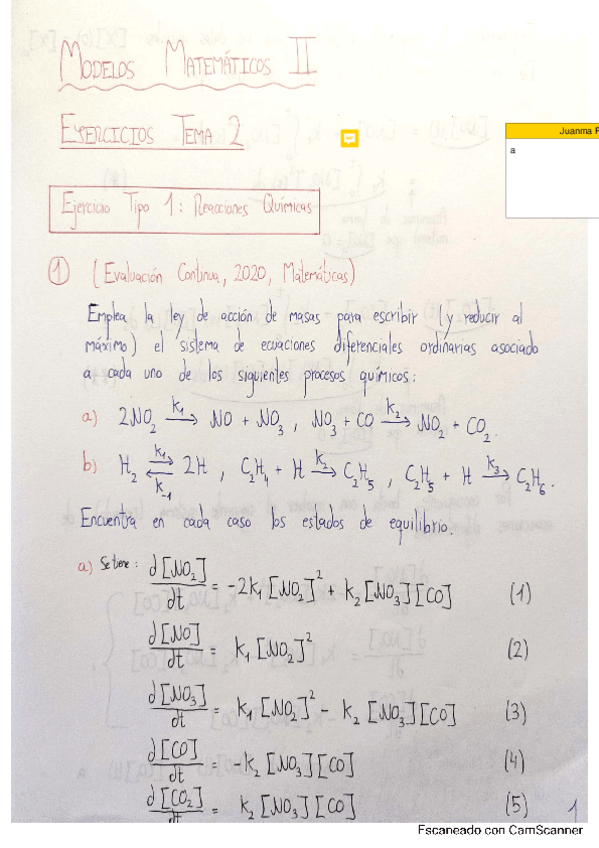 MODELOS MATEMÁTICOS II
EJERCICIOS TEMA 2
Juanma
a
Ejercicio Tipo 1: Reacciones Químicas
① (Evaluación Continua, 2020, Matemáticas)
Emplea la ley de acción de masas para escribir (y reducir al
máximo) el sistema de ecuaciones diferenciales ordinarias asociado
a cada uno de los siguientes procesos químicos:
a) 2NO₂ —k₁→ NO + NO₃ , NO₃ + CO —k₂→ NO₂ + CO₂.
b) H₂ ⇌ (k₁, k₋₁) 2H , C₂H₄ + H —k₂→ C₂H₅ , C₂H₅ + H —k₃→ C₂H₆.
Encuentra en cada caso los estados de equilibrio.
a) Se tiene: d[NO₂]/dt = -2k₁[NO₂]² + k₂[NO₃][CO] (1)
d[NO]/dt = k₁[NO₂]² (2)
d[NO₃]/dt = k₁[NO₂]² - k₂[NO₃][CO] (3)
d[CO]/dt = -k₂[NO₃][CO] (4)
d[CO₂]/dt = k₂[NO₃][CO] (5)
1
Escaneado con CamScanner